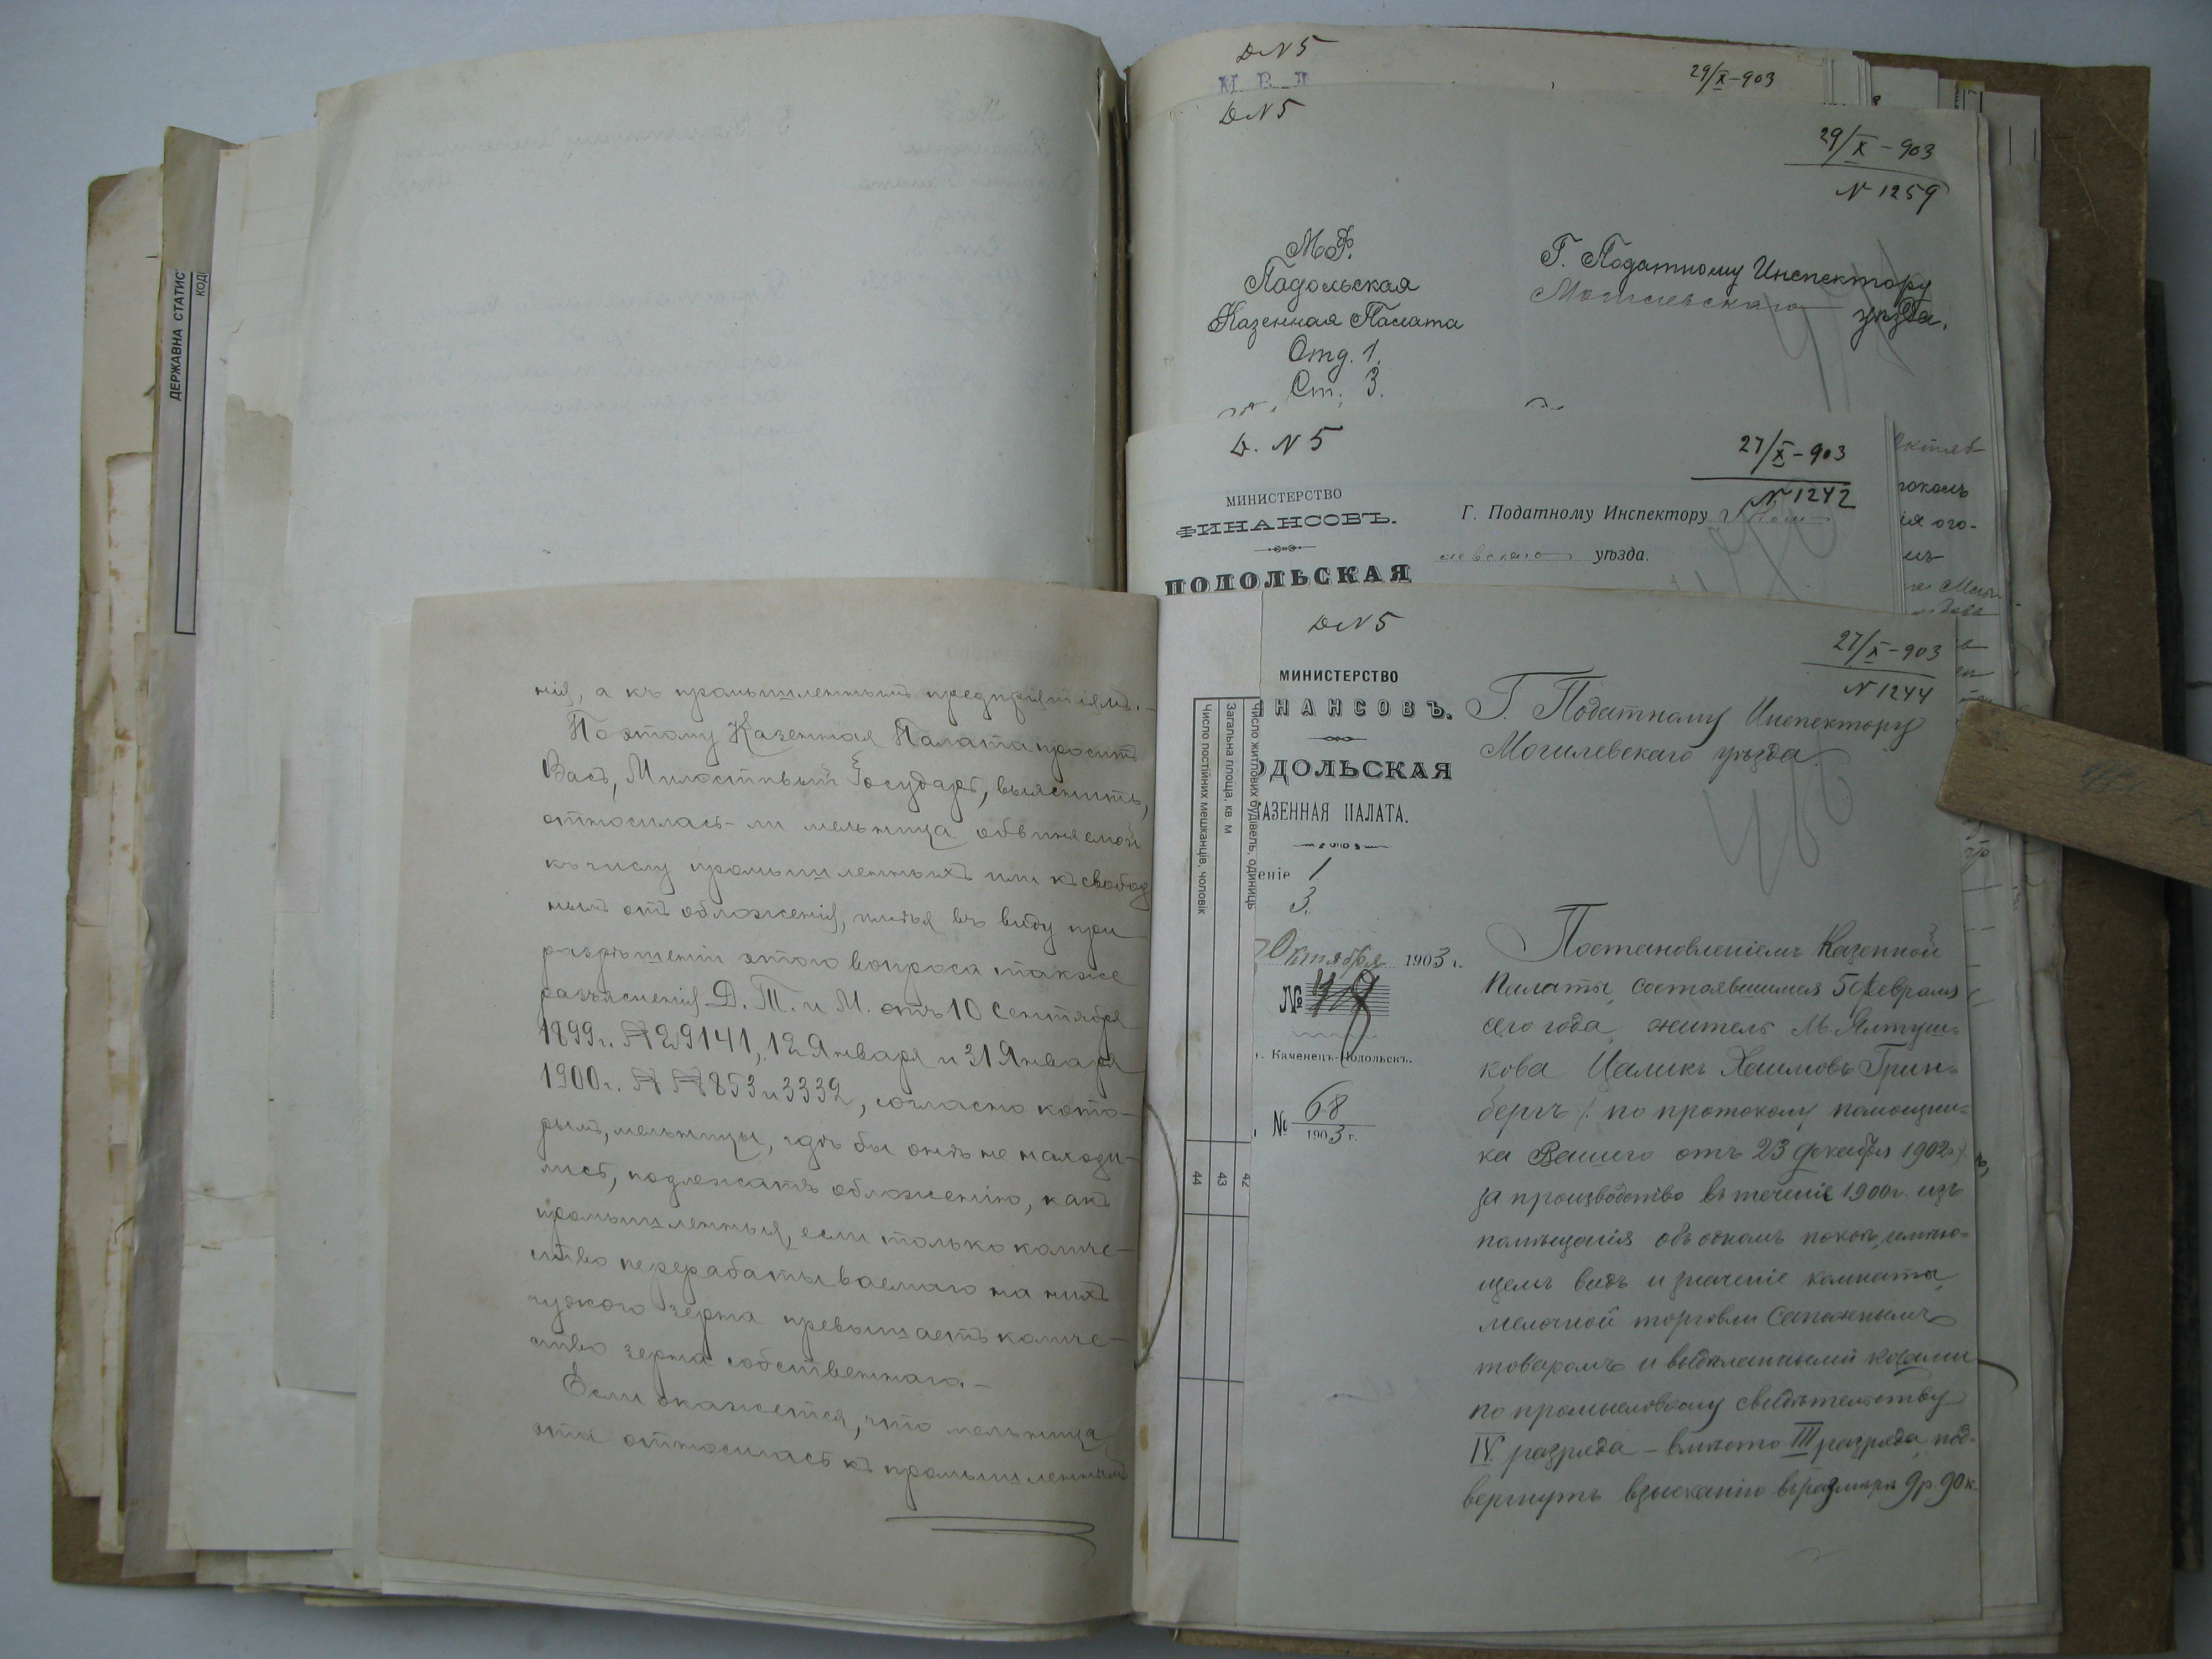 ДЕРЖАВНА СТАТИС
КОД
нія, а къ промышленнымъ предпріятіямъ.—
Поэтому Казенная Палата проситъ
Васъ, Милостивый Государь, выяснить,
относилась-ли мельница обвиняемой
къ числу промышленныхъ или къ свобод
нымъ отъ обложенія, имѣя въ виду при
разрѣшеніи этого вопроса также
разъясненія Д. Т. и М. отъ 10 Сентября
1899 г. № 29141, 12 Января и 31 Января
1900 г. № № 853 и 3332, согласно кото-
рымъ, мельницы, гдѣ бы онѣ не находи-
лись, подлежатъ обложенію, какъ
промышленныя, если только количе-
ство перерабатываемаго на нихъ
чужого зерна превышаетъ количе-
ство зерна собственнаго.—
Если окажется, что мельница
эта относилась къ промышленнымъ
Д N 5
29/X-903
Д N 5
29/X-903
N 1259
М.Ф.
Подольская
Казенная Палата
Отд. 1.
Ст. 3.
Г. Податному Инспектору
Могилевскаго уѣзда.
Д. N 5
27/X-903
N 1242
МИНИСТЕРСТВО
ФИНАНСОВЪ.
ПОДОЛЬСКАЯ
Г. Податному Инспектору Моги
левскаго уѣзда.
Октяб
ія ого-
Д N 5
27/X-903
N 1244
МИНИСТЕРСТВО
НАНСОВЪ.
ОДОЛЬСКАЯ
АЗЕННАЯ ПАЛАТА.
еніе 1
3.
Октября 1903 г.
№
г. Каменецъ-Подольскъ.
№ 68
1903 г.
Число житлових будівель, одиниць
Загальна площа, кв. м
Число постійних мешканців, чоловік
42
43
44
Г. Податному Инспектору
Могилевскаго уѣзда.
Постановленіемъ Казенной
Палаты, состоявшимся 5 Февраля
сего года, житель м. Ялтуш-
кова Цаликъ Хаимовъ Грин-
бергъ (: по протоколу помощни-
ка Вашего отъ 23 декабря 1902 г.)
за производство въ теченіе 1900 г. изъ
помѣщенія объ одномъ покоѣ, имѣю-
щемъ видъ и значеніе комнаты,
мелочной торговли сапожнымъ
товаромъ и выдѣланными кожами
по промысловому свидѣтельству
IV разряда — вмѣсто III разряда, под-
вергнутъ взысканію въ размѣрѣ 9 р. 90 к.